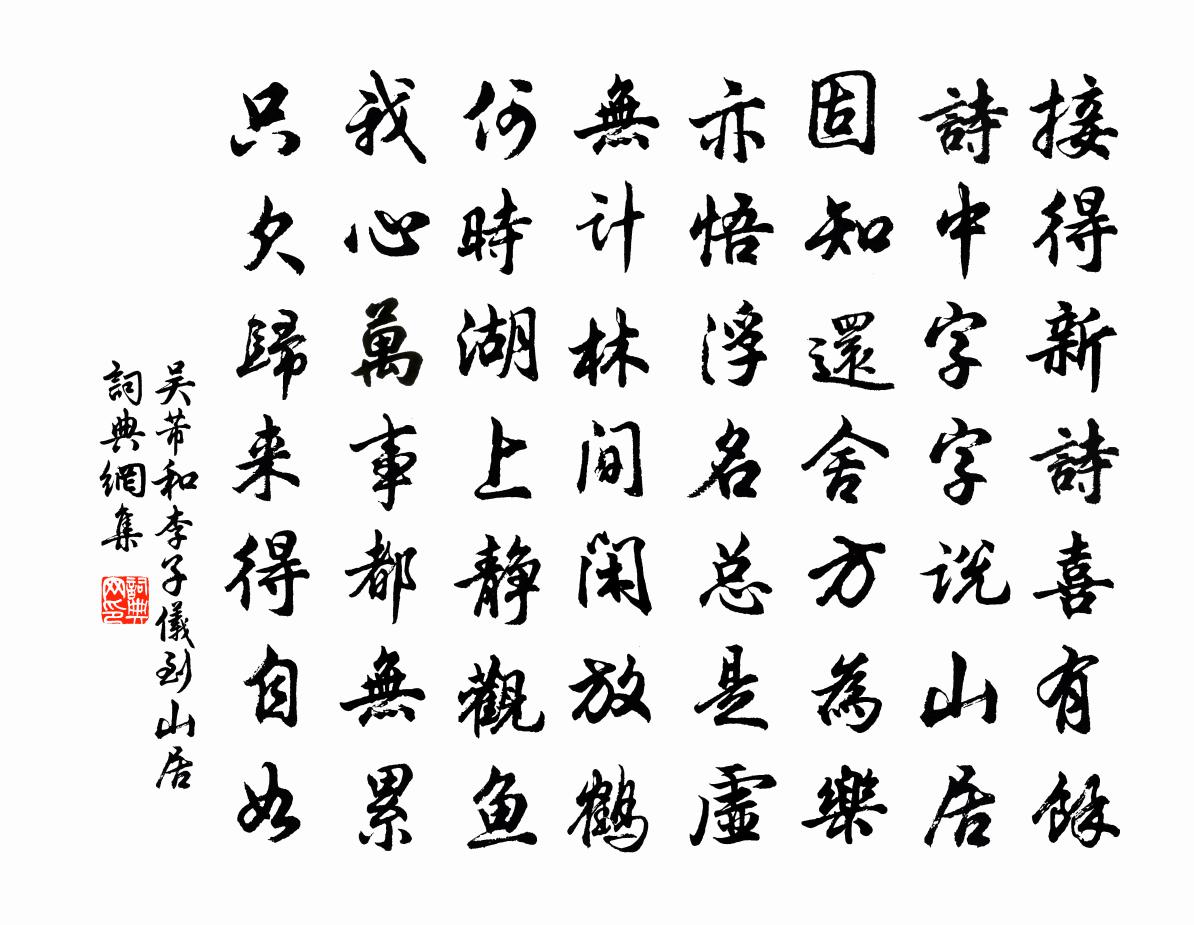 接得新詩喜有餘
詩中字字说山居
固知還舍方為樂
亦悟浮名总是虛
無计林间闲放鶴
何時湖上靜觀鱼
我心萬事都無累
只欠歸来得自如
吴芾和李子儀到山居
詞典網集
詞典网印